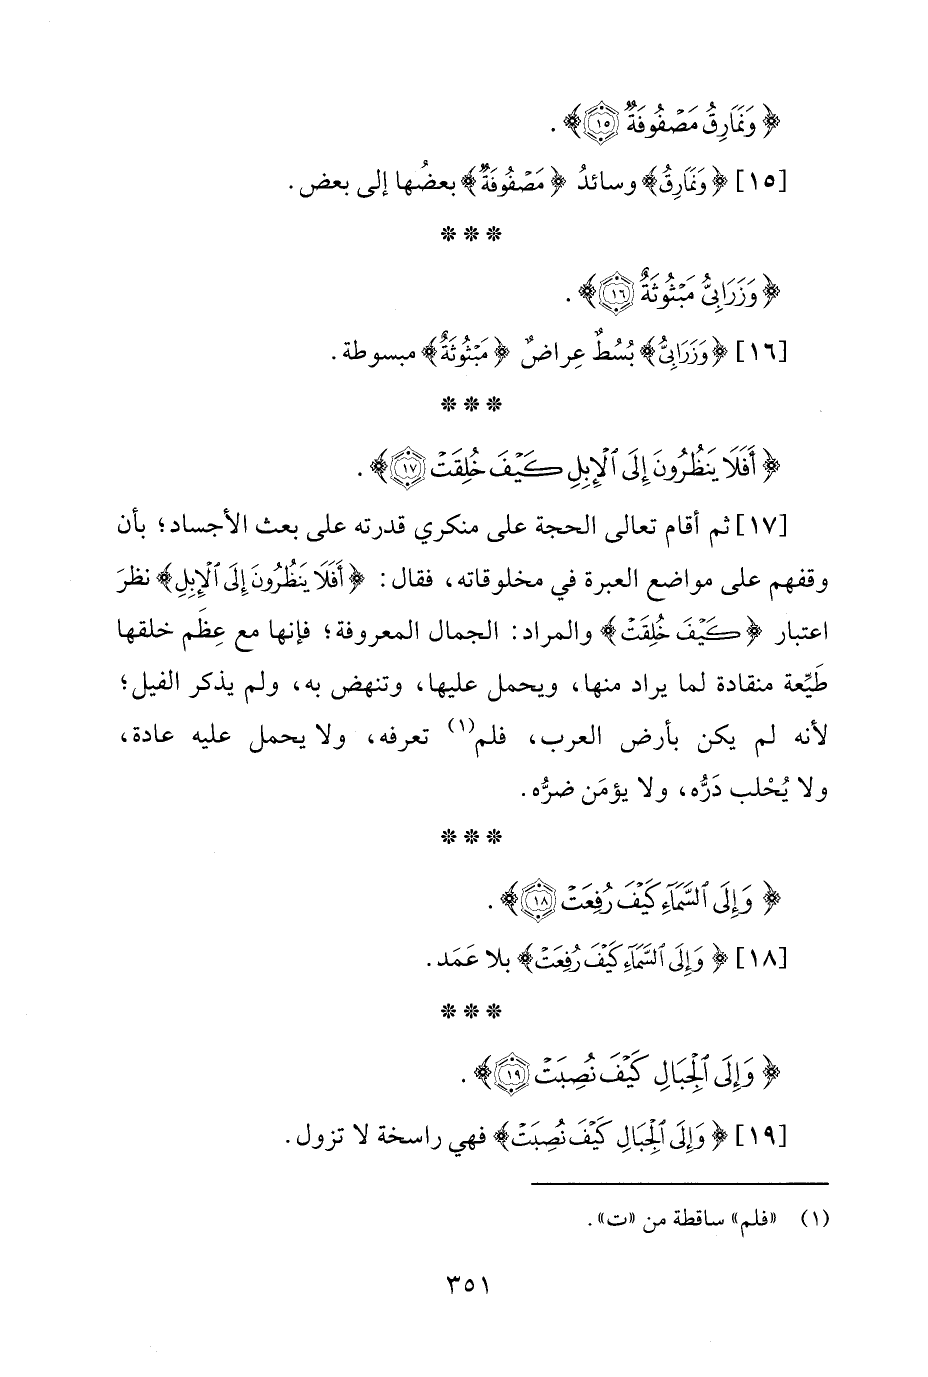 ﴿وَنَمَارِقُ مَصْفُوفَةٌ ١٥﴾.
[١٥] ﴿وَنَمَارِقُ﴾ وسائدُ ﴿مَصْفُوفَةٌ﴾ بعضُها إلى بعض.
***
﴿وَزَرَابِيُّ مَبْثُوثَةٌ ١٦﴾.
[١٦] ﴿وَزَرَابِيُّ﴾ بُسُطٌ عِراضٌ ﴿مَبْثُوثَةٌ﴾ مبسوطة.
***
﴿أَفَلَا يَنظُرُونَ إِلَى ٱلْإِبِلِ كَيْفَ خُلِقَتْ ١٧﴾.
[١٧] ثم أقام تعالى الحجة على منكري قدرته على بعث الأجساد؛ بأن
وقفهم على مواضع العبرة في مخلوقاته، فقال: ﴿أَفَلَا يَنظُرُونَ إِلَى ٱلْإِبِلِ﴾ نظرَ
اعتبار ﴿كَيْفَ خُلِقَتْ﴾ والمراد: الجمال المعروفة؛ فإنها مع عِظَم خلقها
طَيِّعة منقادة لما يراد منها، ويحمل عليها، وتنهض به، ولم يذكر الفيل؛
لأنه لم يكن بأرض العرب، فلم(١) تعرفه، ولا يحمل عليه عادة،
ولا يُحْلب دَرُّه، ولا يؤمَن ضرُّه.
***
﴿وَإِلَى ٱلسَّمَآءِ كَيْفَ رُفِعَتْ ١٨﴾.
[١٨] ﴿وَإِلَى ٱلسَّمَآءِ كَيْفَ رُفِعَتْ﴾ بلا عَمَد.
***
﴿وَإِلَى ٱلْجِبَالِ كَيْفَ نُصِبَتْ ١٩﴾.
[١٩] ﴿وَإِلَى ٱلْجِبَالِ كَيْفَ نُصِبَتْ﴾ فهي راسخة لا تزول.
(١) «فلم» ساقطة من «ت».
٣٥١